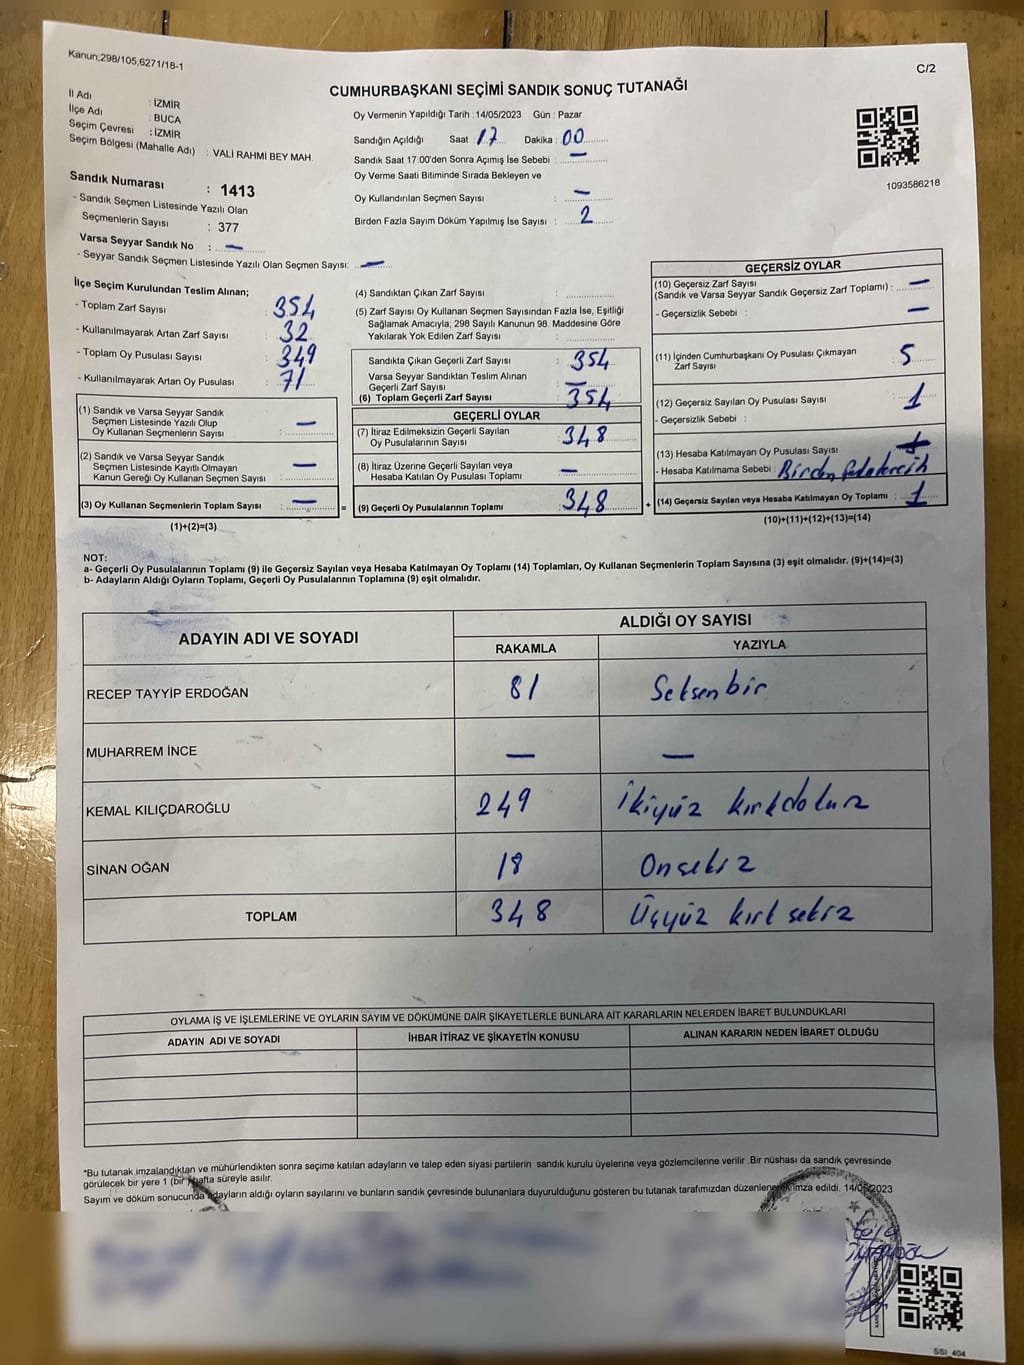 Kanun;298/105,6271/18-1
C/2
CUMHURBAŞKANI SEÇİMİ SANDIK SONUÇ TUTANAĞI
İl Adı : İZMİR
İlçe Adı : BUCA
Seçim Çevresi : İZMİR
Seçim Bölgesi (Mahalle Adı) : VALİ RAHMİ BEY MAH.
Oy Vermenin Yapıldığı Tarih :14/05/2023 Gün : Pazar
Sandığın Açıldığı Saat : 17 Dakika : 00
Sandık Saat 17.00'den Sonra Açımış İse Sebebi : —
Oy Verme Saati Bitiminde Sırada Bekleyen ve
Oy Kullandırılan Seçmen Sayısı : —
Birden Fazla Sayım Döküm Yapılmış İse Sayısı : 2
1093586218
Sandık Numarası : 1413
- Sandık Seçmen Listesinde Yazılı Olan
Seçmenlerin Sayısı : 377
Varsa Seyyar Sandık No : —
- Seyyar Sandık Seçmen Listesinde Yazılı Olan Seçmen Sayısı: —
İlçe Seçim Kurulundan Teslim Alınan;
- Toplam Zarf Sayısı : 354
- Kullanılmayarak Artan Zarf Sayısı : 32
- Toplam Oy Pusulası Sayısı : 349
- Kullanılmayarak Artan Oy Pusulası : 71
(1) Sandık ve Varsa Seyyar Sandık
Seçmen Listesinde Yazılı Olup
Oy Kullanan Seçmenlerin Sayısı : —
(2) Sandık ve Varsa Seyyar Sandık
Seçmen Listesinde Kayıtlı Olmayan
Kanun Gereği Oy Kullanan Seçmen Sayısı : —
(3) Oy Kullanan Seçmenlerin Toplam Sayısı : — =
(1)+(2)=(3)
(4) Sandıktan Çıkan Zarf Sayısı :
(5) Zarf Sayısı Oy Kullanan Seçmen Sayısından Fazla İse, Eşitliği
Sağlamak Amacıyla; 298 Sayılı Kanunun 98. Maddesine Göre
Yakılarak Yok Edilen Zarf Sayısı :
Sandıkta Çıkan Geçerli Zarf Sayısı : 354
Varsa Seyyar Sandıktan Teslim Alınan
Geçerli Zarf Sayısı : —
(6) Toplam Geçerli Zarf Sayısı : 354
GEÇERLİ OYLAR
(7) İtiraz Edilmeksizin Geçerli Sayılan
Oy Pusulalarının Sayısı : 348
(8) İtiraz Üzerine Geçerli Sayılan veya
Hesaba Katılan Oy Pusulası Toplamı : —
(9) Geçerli Oy Pusulalarının Toplamı : 348 +
GEÇERSİZ OYLAR
(10) Geçersiz Zarf Sayısı
(Sandık ve Varsa Seyyar Sandık Geçersiz Zarf Toplamı) : —
- Geçersizlik Sebebi : —
(11) İçinden Cumhurbaşkanı Oy Pusulası Çıkmayan
Zarf Sayısı : 5
(12) Geçersiz Sayılan Oy Pusulası Sayısı : 1
- Geçersizlik Sebebi :
(13) Hesaba Katılmayan Oy Pusulası Sayısı :
- Hesaba Katılmama Sebebi : Birden fazla tercih
(14) Geçersiz Sayılan veya Hesaba Katılmayan Oy Toplamı : 1
(10)+(11)+(12)+(13)=(14)
NOT:
a- Geçerli Oy Pusulalarının Toplamı (9) ile Geçersiz Sayılan veya Hesaba Katılmayan Oy Toplamı (14) Toplamları, Oy Kullanan Seçmenlerin Toplam Sayısına (3) eşit olmalıdır. (9)+(14)=(3)
b- Adayların Aldığı Oyların Toplamı, Geçerli Oy Pusulalarının Toplamına (9) eşit olmalıdır.
ADAYIN ADI VE SOYADI ALDIĞI OY SAYISI
RAKAMLA YAZIYLA
RECEP TAYYİP ERDOĞAN 81 Seksenbir
MUHARREM İNCE — —
KEMAL KILIÇDAROĞLU 249 İkiyüz kırkdokuz
SİNAN OĞAN 18 Onsekiz
TOPLAM 348 Üçyüz kırk sekiz
OYLAMA İŞ VE İŞLEMLERİNE VE OYLARIN SAYIM VE DÖKÜMÜNE DAİR ŞİKAYETLERLE BUNLARA AİT KARARLARIN NELERDEN İBARET BULUNDUKLARI
ADAYIN ADI VE SOYADI İHBAR İTİRAZ VE ŞİKAYETİN KONUSU ALINAN KARARIN NEDEN İBARET OLDUĞU
*Bu tutanak imzalandıktan ve mühürlendikten sonra seçime katılan adayların ve talep eden siyasi partilerin sandık kurulu üyelerine veya gözlemcilerine verilir .Bir nüshası da sandık çevresinde
görülecek bir yere 1 (bir) hafta süreyle asılır.
Sayım ve döküm sonucunda adayların aldığı oyların sayılarını ve bunların sandık çevresinde bulunanlara duyurulduğunu gösteren bu tutanak tarafımızdan düzenlenerek imza edildi. 14/05/2023
SSI_404